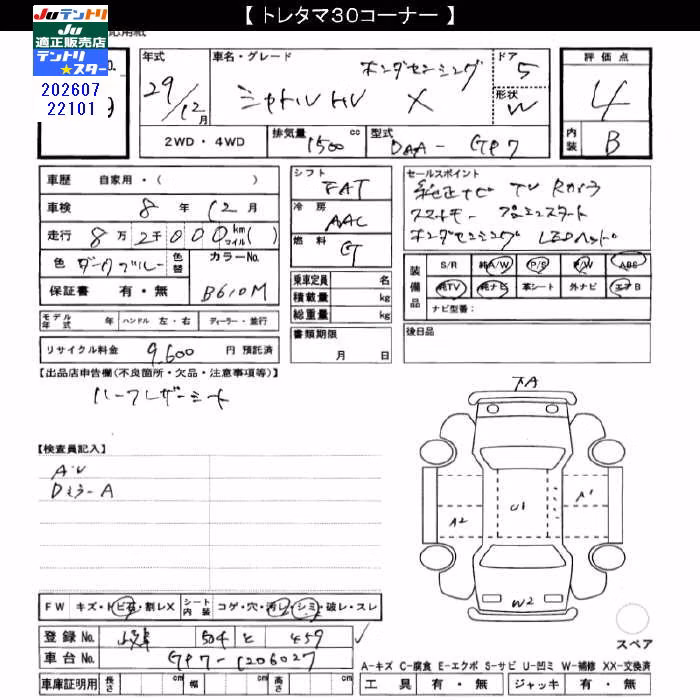 【 トレタマ30コーナー 】
JUテントリ
JU
適正販売店
テントリ
★スター
202607
22101
年式
29/12月
車名・グレード
ホンダセンシング
シャトルHV X
ドア
5
形状
W
評価点
4
内装
B
2WD・4WD
排気量
1500 cc
型式
DAA-GP7
車歴 自家用・( )
車検 8 年 12 月
走行 8 万 2 千 000 km マイル( )
色 ダークブルー 色替 カラーNo.
保証書 有・無 B610M
シフト
FAT
冷房
AAC
燃料
G
乗車定員 名
積載量 kg
総重量 kg
書類期限
月 日
セールスポイント
純正ナビ TV Rカメラ
スマートキー プッシュスタート
ホンダセンシング LEDヘッド
装備品
S/R 純A/W P/S P/W ABS
純TV 純ナビ 革シート 外ナビ エアB
ナビ型番:
後日品
モデル年式 年 ハンドル 左・右 ディーラー・並行
リサイクル料金 9,600 円 預託済
【出品店申告欄(不良箇所・欠品・注意事項等)】
ハーフレザーシート
【検査員記入】
A・U
DミラーA
下A
A2
U1
A1
W2
スペア
FW キズ・トビ石・割レX シート内装 コゲ・穴・汚レ・シミ・破レ・スレ
登録No. 504 と 459
車台No. GP7-1206027
A-キズ C-腐食 E-エクボ S-サビ U-凹ミ W-補修 XX-交換済
車庫証明用 長さ cm 幅 cm 高さ cm
工具 有・無 ジャッキ 有・無